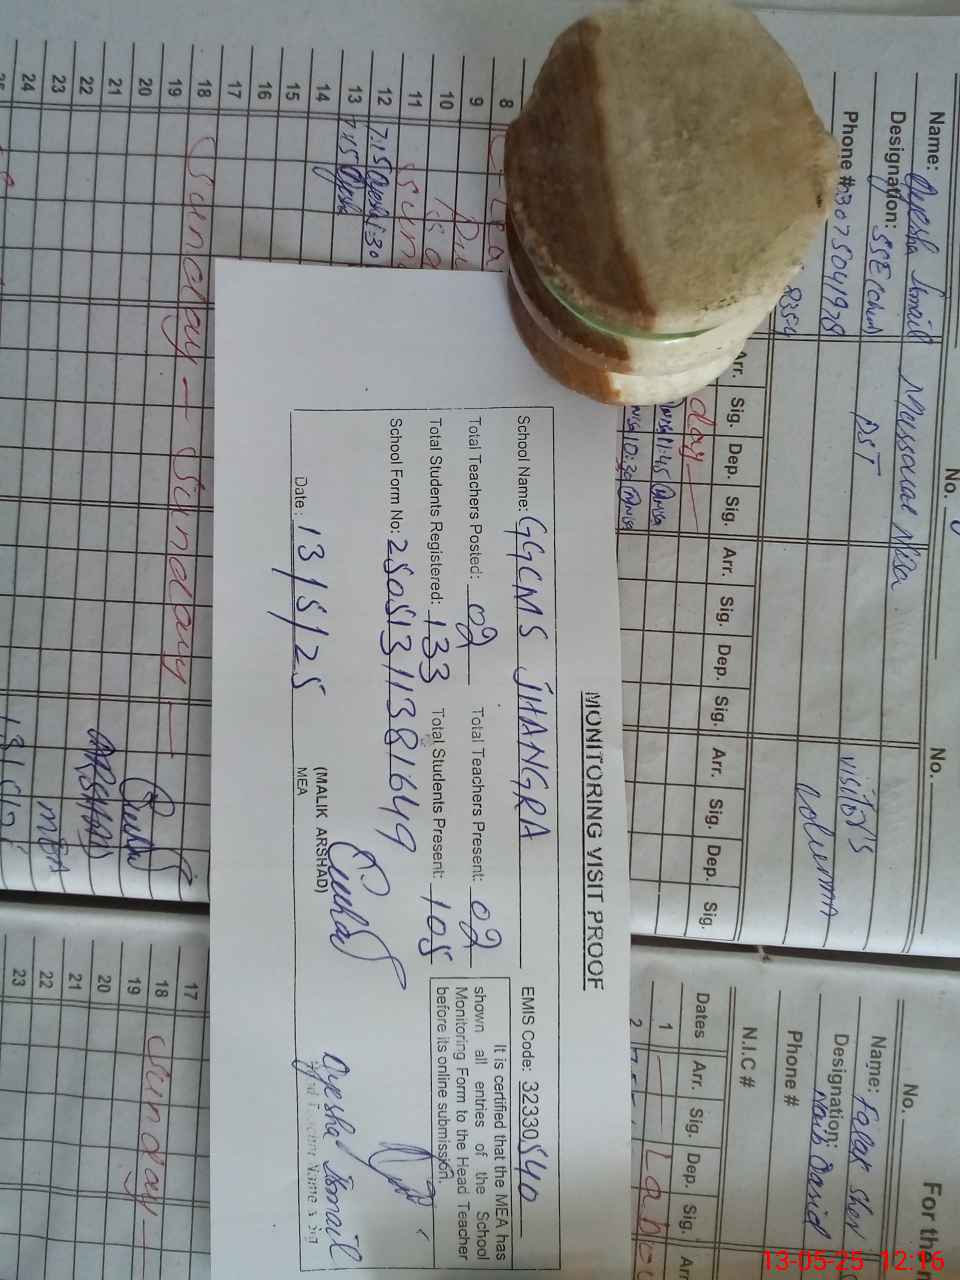 MONITORING VISIT PROOF
School Name: GGCMS JHANGRA EMIS Code: 32330540
Total Teachers Posted: 02 Total Teachers Present: 02
Total Students Registered: 133 Total Students Present: 105
School Form No: 2505131138164 9
It is certified that the MEA has
shown all entries of the School
Monitoring Form to the Head Teacher
before its online submission.
Date: 13/5/25
(MALIK ARSHAD)
MEA
Ayesha Ismail
No.
No.
Name: Ayesha Ismail Mussarat Nisa
Designation: SSE(chem) PST
Phone # 03075041978
visitor's
column
8354
Arr. Sig. Dep. Sig. Arr. Sig. Dep. Sig. Arr. Sig. Dep. Sig.
day
11:45
10:30
8
9
10
11
12 7.15 Ayesha 1:30
13 7.45 Ayesha
14
15
16
17
18 Sunday — Sunday —
19
20
21
22 ARSHAD
23 MEA
24
For the
No.
Name: Falak Sher
Designation: Naib Qasid
Phone #
N.I.C #
Dates Arr. Sig. Dep. Sig. Arr
1 — Labou
2
17
18 Sunday —
19
20
21
22
23
13-05-25 12:16